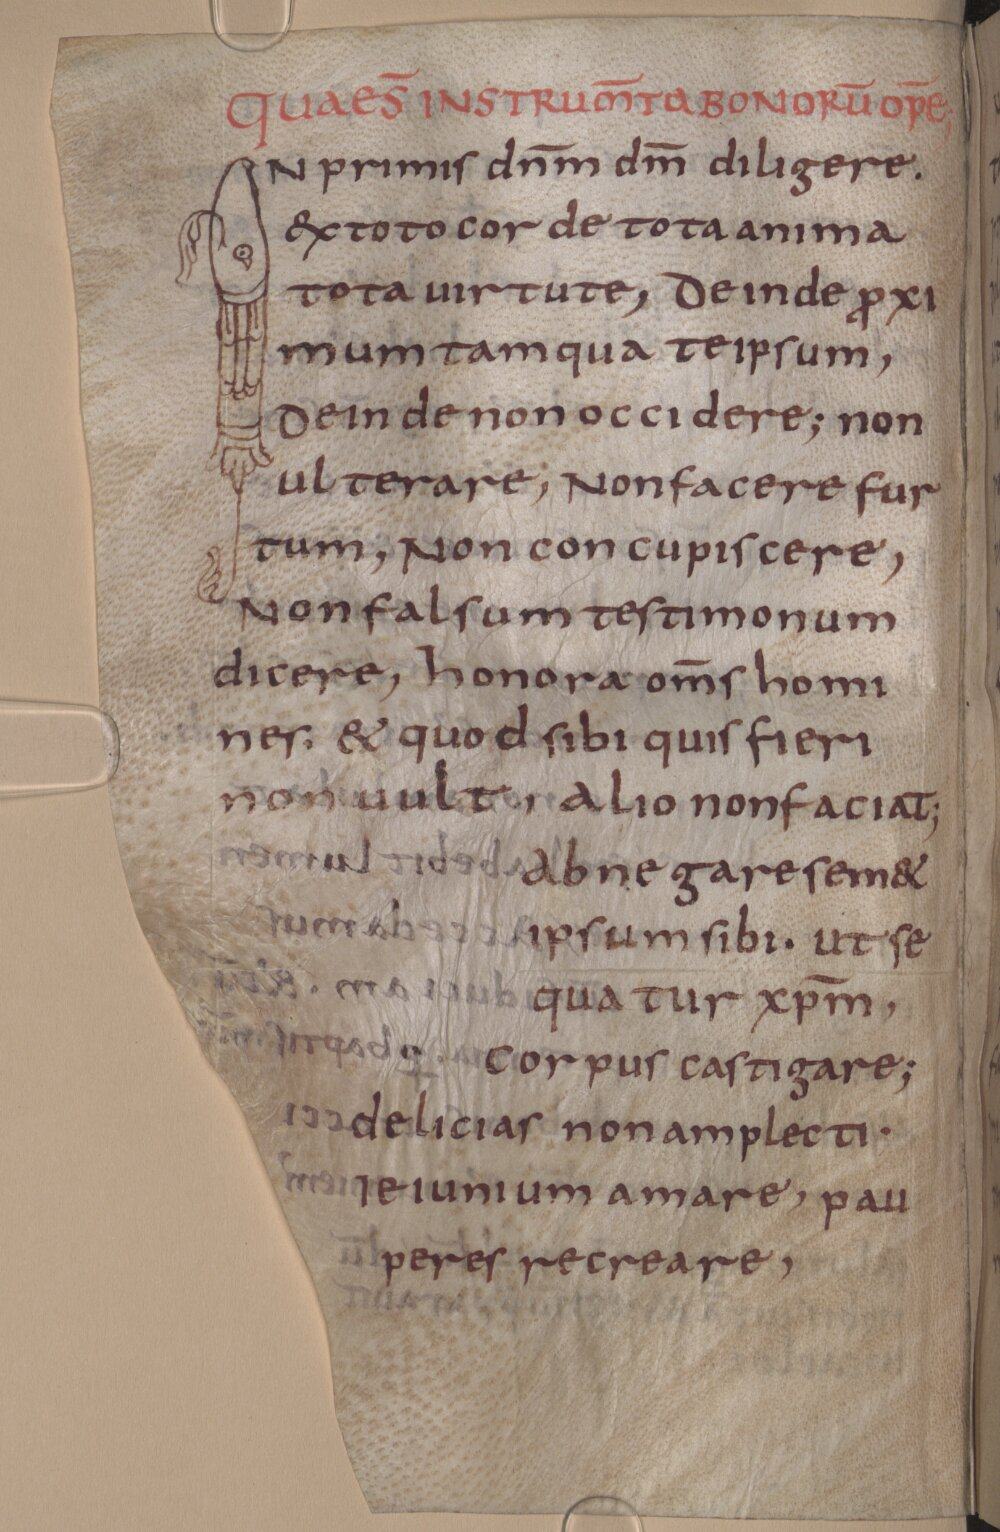 QUAE S̄ INSTRUM̄TA BONORŪ OP̄E;
IN primis dn̄m dm̄ diligere.
& toto corde tota anima
tota uirtute, Deinde ꝓxi
mum tamqua teipsum,
Deinde non occidere; non
ulterare, Non facere fur
tum, Non concupiscere,
Non falsum testimonum
dicere, honora om̄s homi
nes. & quod sibi quis fieri
non uult, alio non faciat;
Abnegare sem&
ipsum sibi. ut se
quatur xp̄m,
Corpus castigare;
delicias non amplecti.
Ieiunium amare, pau
peres recreare,